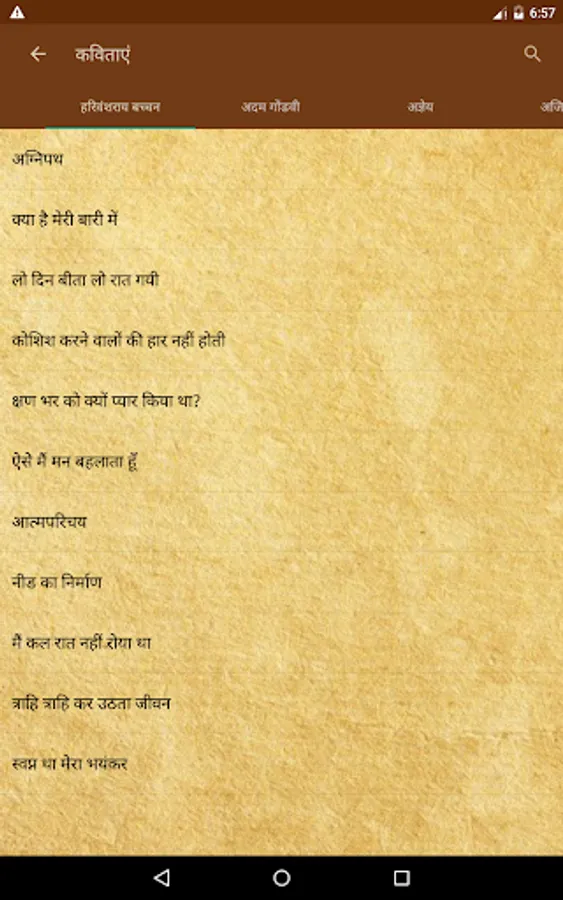 6:57
कविताएं
हरिवंशराय बच्चन अदम गोंडवी अज्ञेय अजि
अग्निपथ
क्या है मेरी बारी में
लो दिन बीता लो रात गयी
कोशिश करने वालों की हार नहीं होती
क्षण भर को क्यों प्यार किया था?
ऐसे मैं मन बहलाता हूँ
आत्मपरिचय
नीड का निर्माण
मैं कल रात नहीं रोया था
त्राहि त्राहि कर उठता जीवन
स्वप्न था मेरा भयंकर